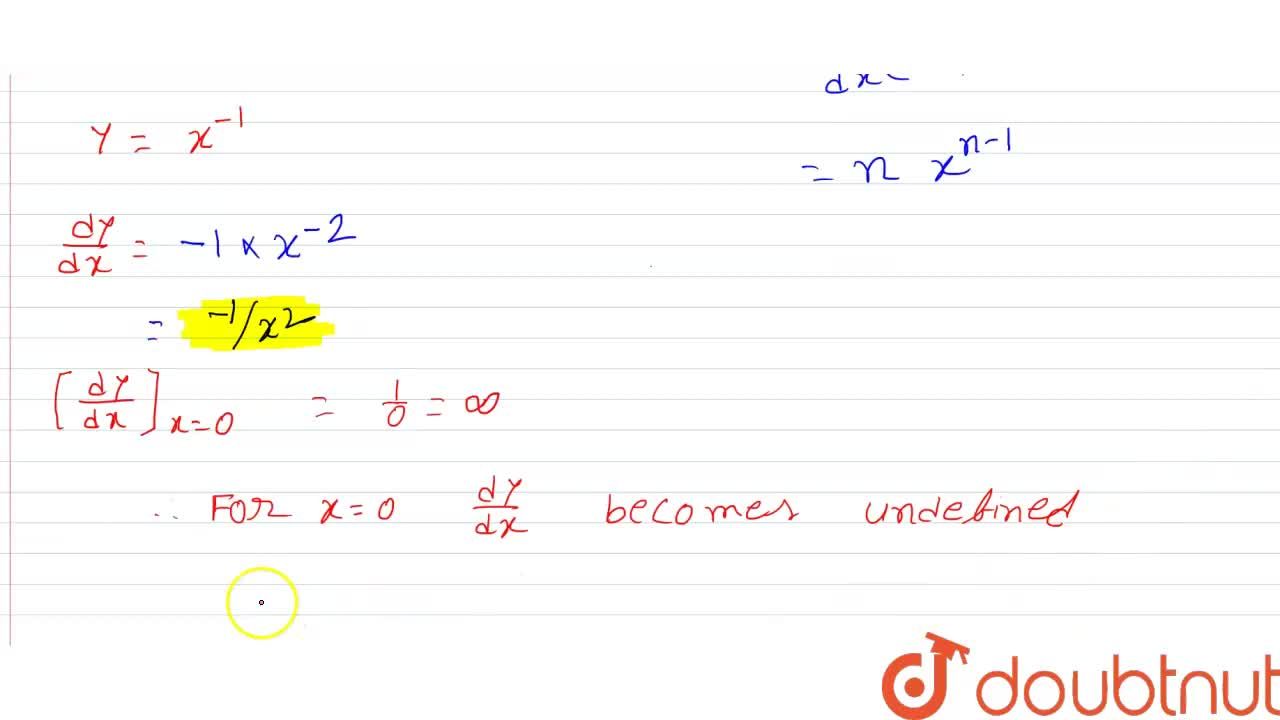 y = x^{-1}
= n x^{n-1}
dy/dx = -1 × x^{-2}
= -1/x2
[dy/dx]_{x=0} = 1/0 = ∞
∴ For x=0 dy/dx becomes undefined
doubtnut